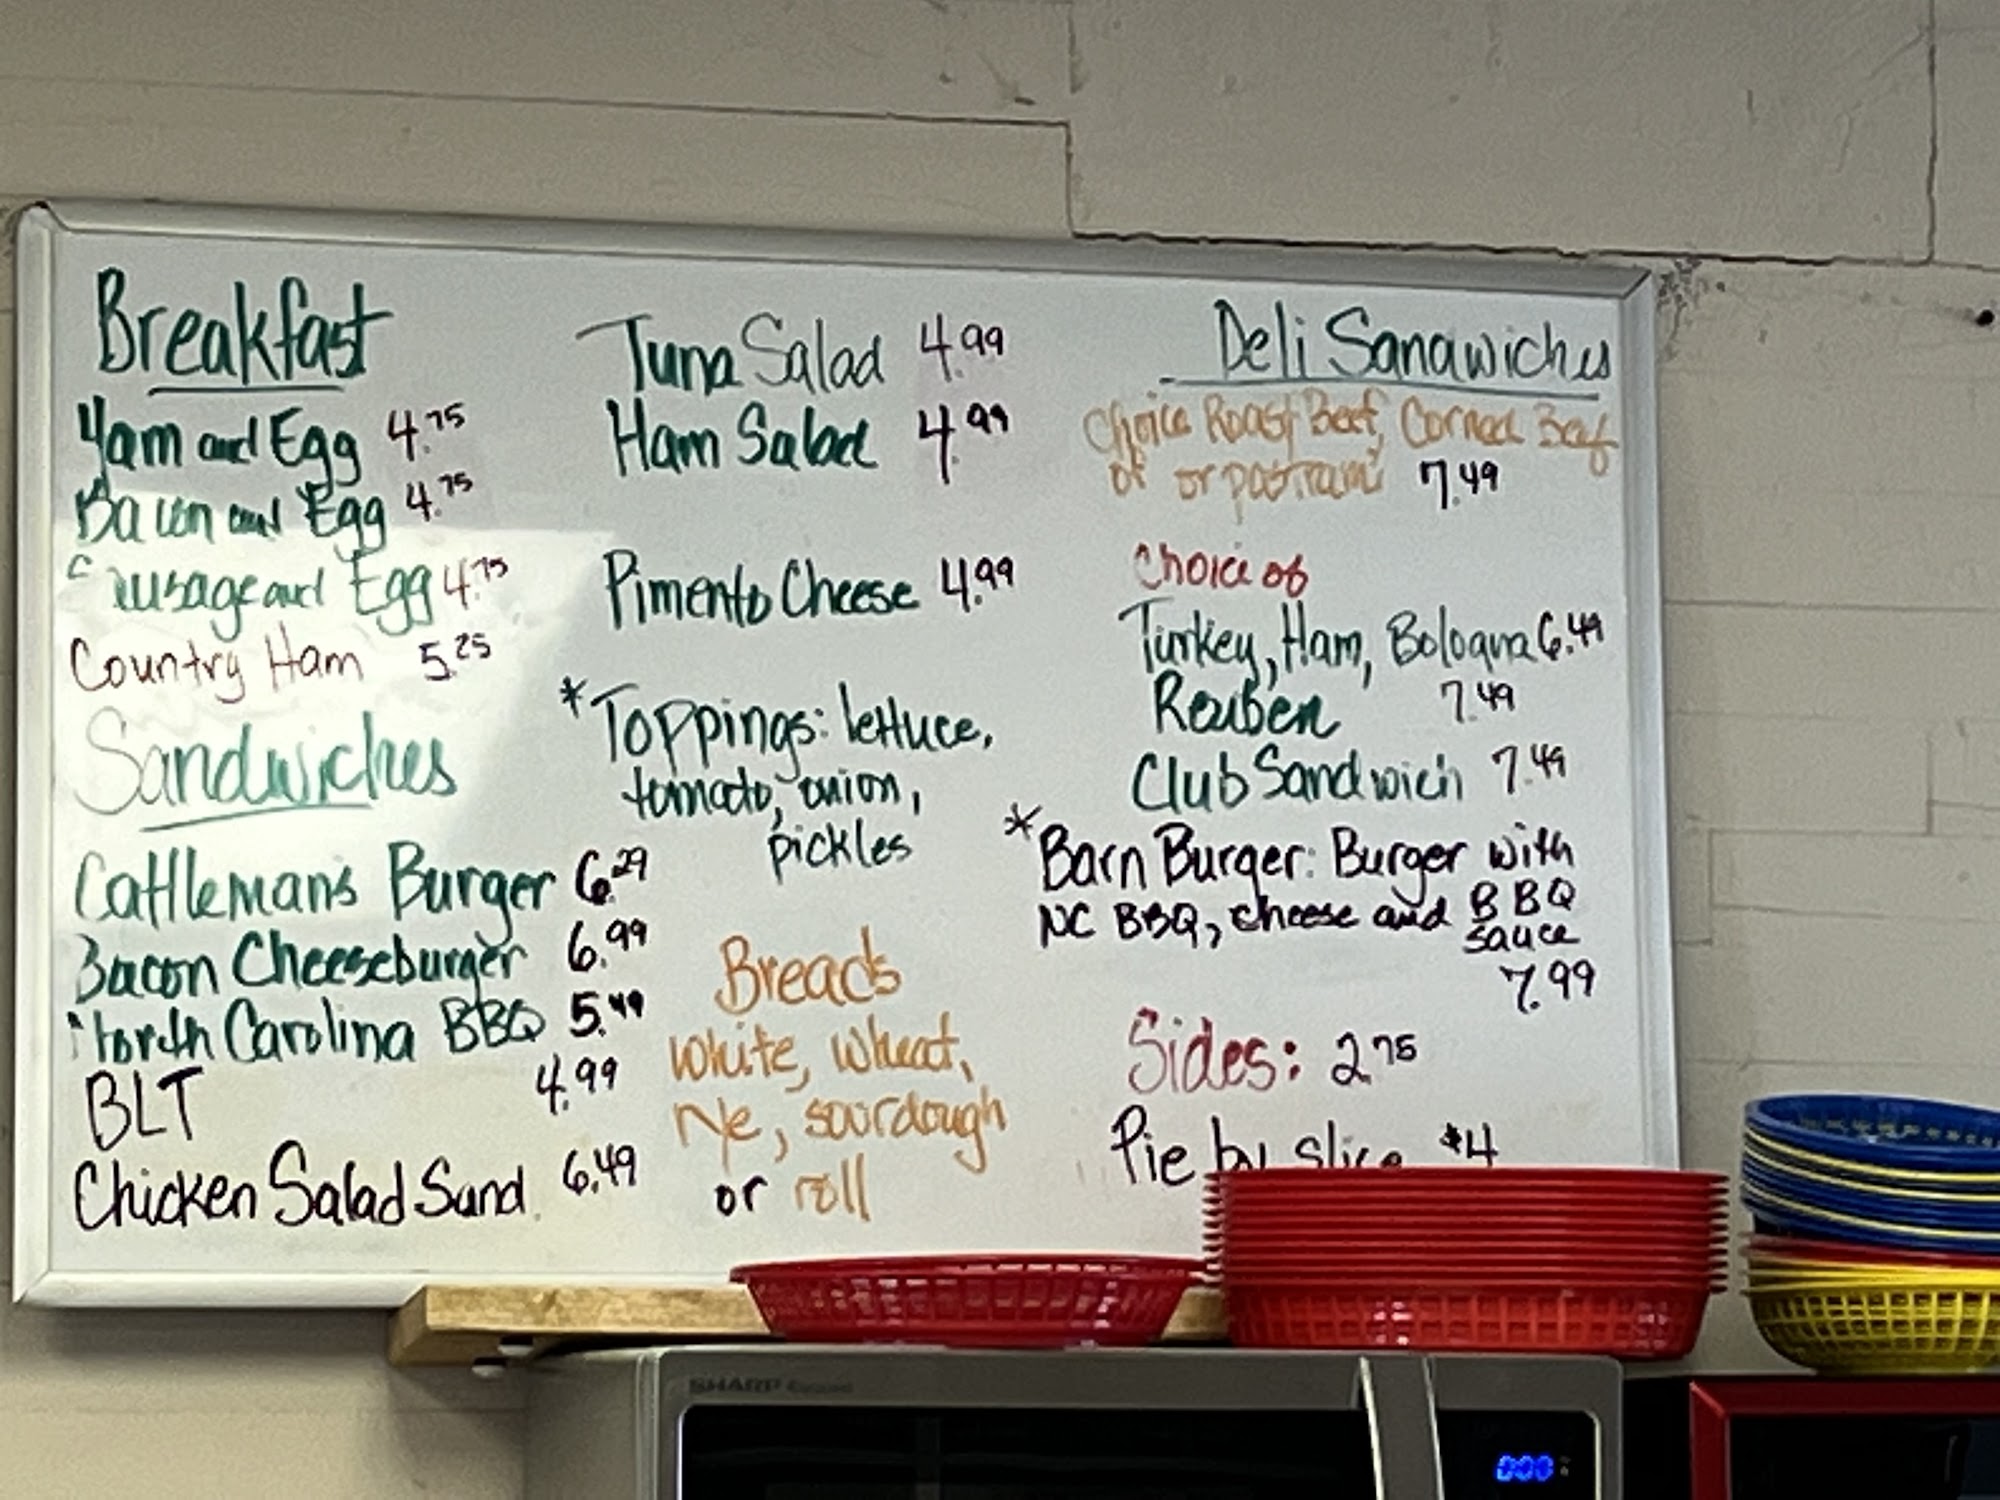 Breakfast
Ham and Egg 4.75
Bacon and Egg 4.75
Sausage and Egg 4.75
Country Ham 5.25
Sandwiches
Cattlemans Burger 6.29
Bacon Cheeseburger 6.99
North Carolina BBQ 5.49
BLT 4.99
Chicken Salad Sand. 6.49
Tuna Salad 4.99
Ham Salad 4.99
Pimento Cheese 4.99
*Toppings: lettuce,
tomato, onion,
pickles
Breads
White, Wheat,
rye, sourdough
or roll
Deli Sandwiches
Choice Roast Beef, Corned Beef
of or pastrami 7.49
Choice of
Turkey, Ham, Bologna 6.49
Reuben 7.49
Club Sandwich 7.49
*Barn Burger: Burger with
NC BBQ, cheese and BBQ
sauce
7.99
Sides: 2.75
Pie by slice $4
SHARP
000